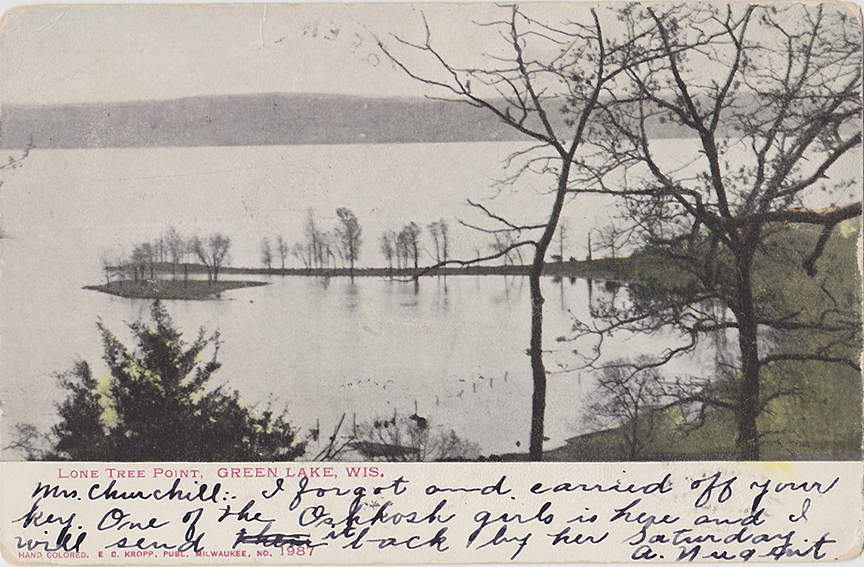 LONE TREE POINT, GREEN LAKE, WIS.
Mrs. Churchill:. I forgot and carried off your
key. One of the Oshkosh girls is here and I
will send it back by her Saturday.
A. Nugent.
HAND COLORED. E. C. KROPP, PUBL. MILWAUKEE, NO. 1987